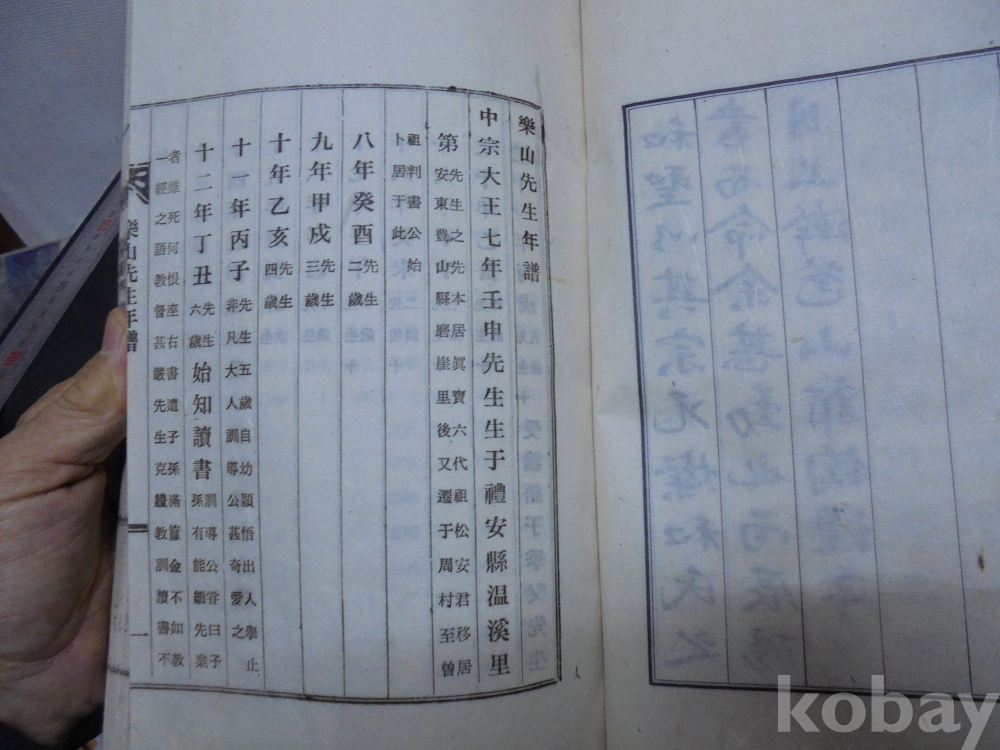 樂山先生年譜
中宗大王七年壬申先生生于禮安縣温溪里
第先生之先本居眞寶六代祖松安君移居
安東豊山縣磨崖里後又遷于周村至曾
祖判書公始
卜居于此
八年癸酉先生二歲
九年甲戌先生三歲
十年乙亥先生四歲
十一年丙子先生五歲自幼穎悟出人擧止
非凡大人訓導公甚奇愛之
十二年丁丑先生六歲始知讀書訓導公甞曰子
孫有能繼先業
者雖死何恨座右書遺子孫滿籯金不如教
一經之語教督甚嚴先生克教訓讀書不
樂山先生年譜
一
kobay